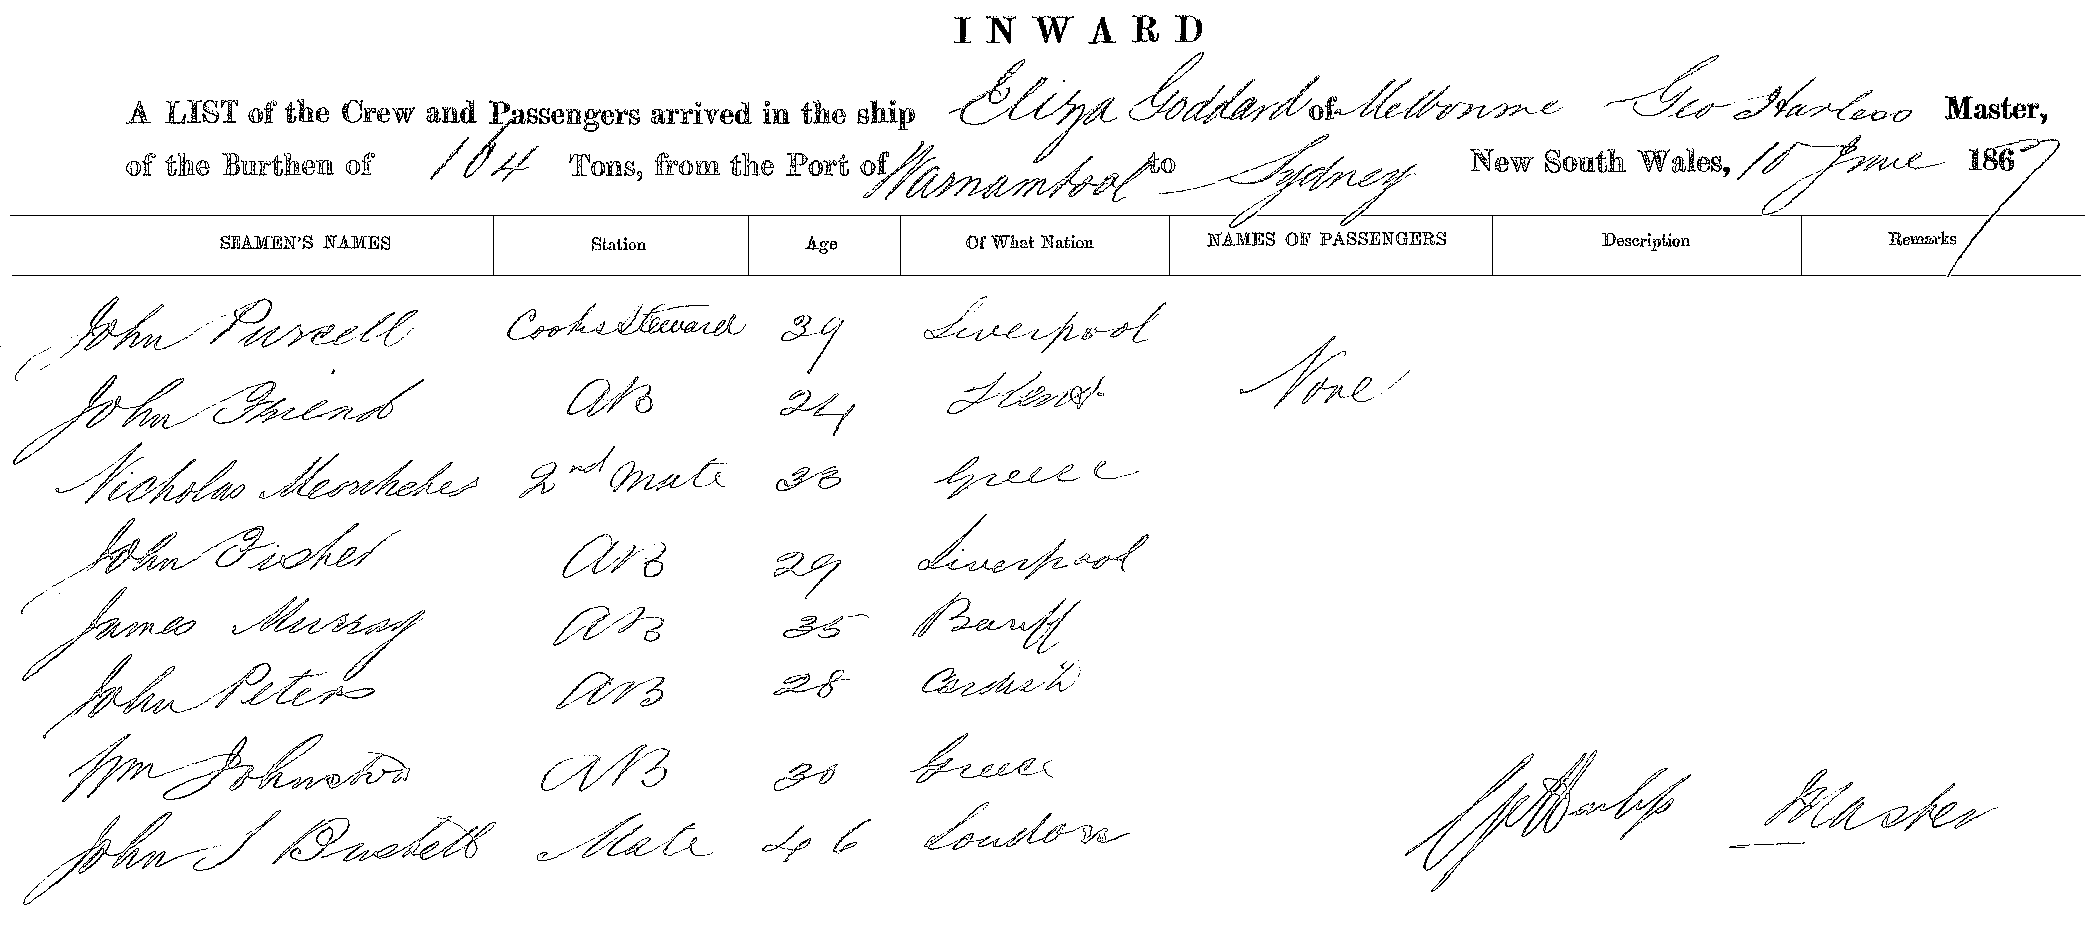 INWARD
A LIST of the Crew and Passengers arrived in the ship Eliza Goddard of Melbourne Geo Harless Master,
of the Burthen of 104 Tons, from the Port of Warnambool to Sydney New South Wales, 10 June 1867
SEAMEN'S NAMES Station Age Of What Nation NAMES OF PASSENGERS Description Remarks
John Purcell Cook & Steward 39 Liverpool
John Friend AB 24 Kent None
Nicholas 2nd Mate 33 Greece
John Fisher AB 29 Liverpool
James Murray AB 35 Banff
John Peters AB 28
Wm Johnston AB 30 Greece
John S Mate 46 London
Master